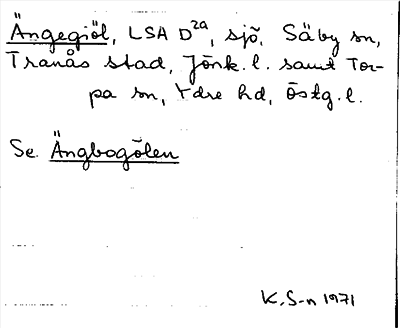 Ängegiöl, LSA D²ᵃ, sjö, Säby sn,
Tranås stad, Jönk. l. samt Tor-
pa sn, Ydre hd, Östg. l.
Se. Ängbogölen
K. S-n 1971